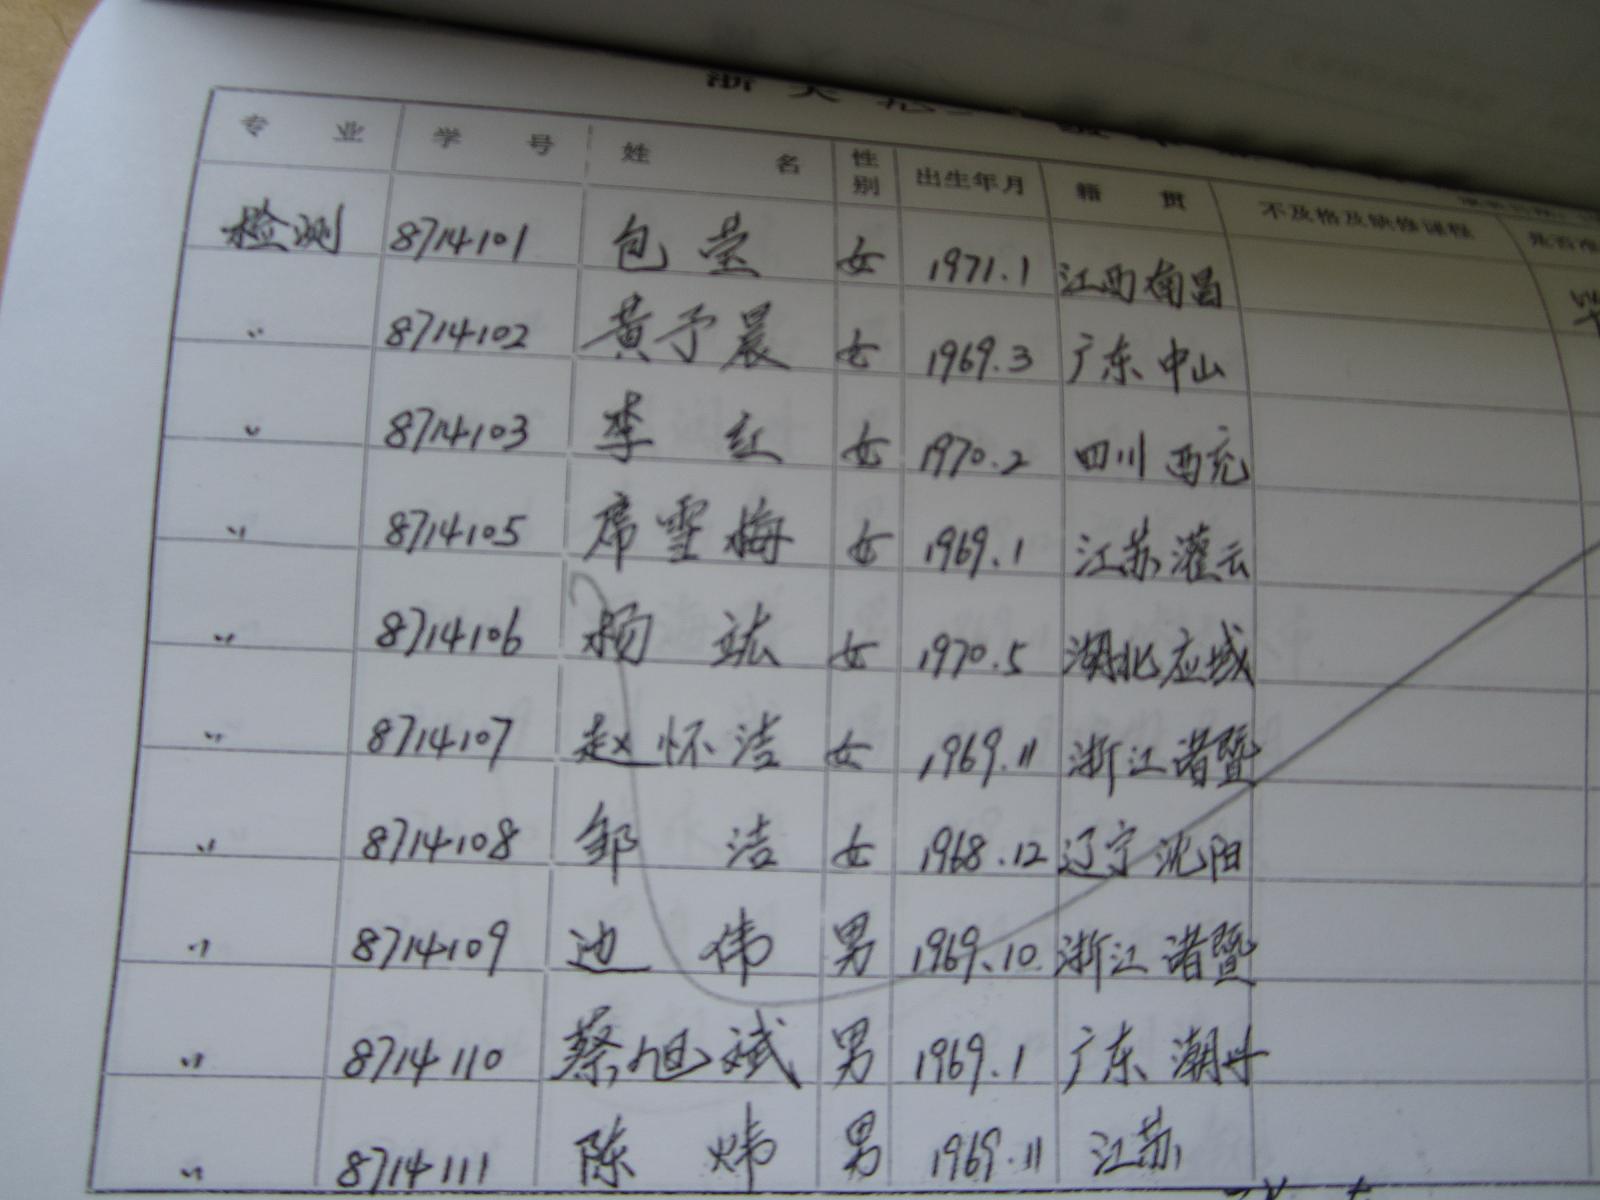 专 业 学 号 姓 名 性别 出生年月 籍 贯 不及格及缺修课程
检测 8714101 包莹 女 1971.1 江西南昌
〃 8714102 黄予晨 女 1969.3 广东中山
〃 8714103 李红 女 1970.2 四川西充
〃 8714105 席雪梅 女 1969.1 江苏灌云
〃 8714106 杨竑 女 1970.5 湖北应城
〃 8714107 赵怀洁 女 1969.11 浙江诸暨
〃 8714108 邹洁 女 1968.12 辽宁沈阳
〃 8714109 边伟 男 1969.10 浙江诸暨
〃 8714110 蔡旭斌 男 1969.1 广东潮州
〃 8714111 陈炜 男 1969.11 江苏